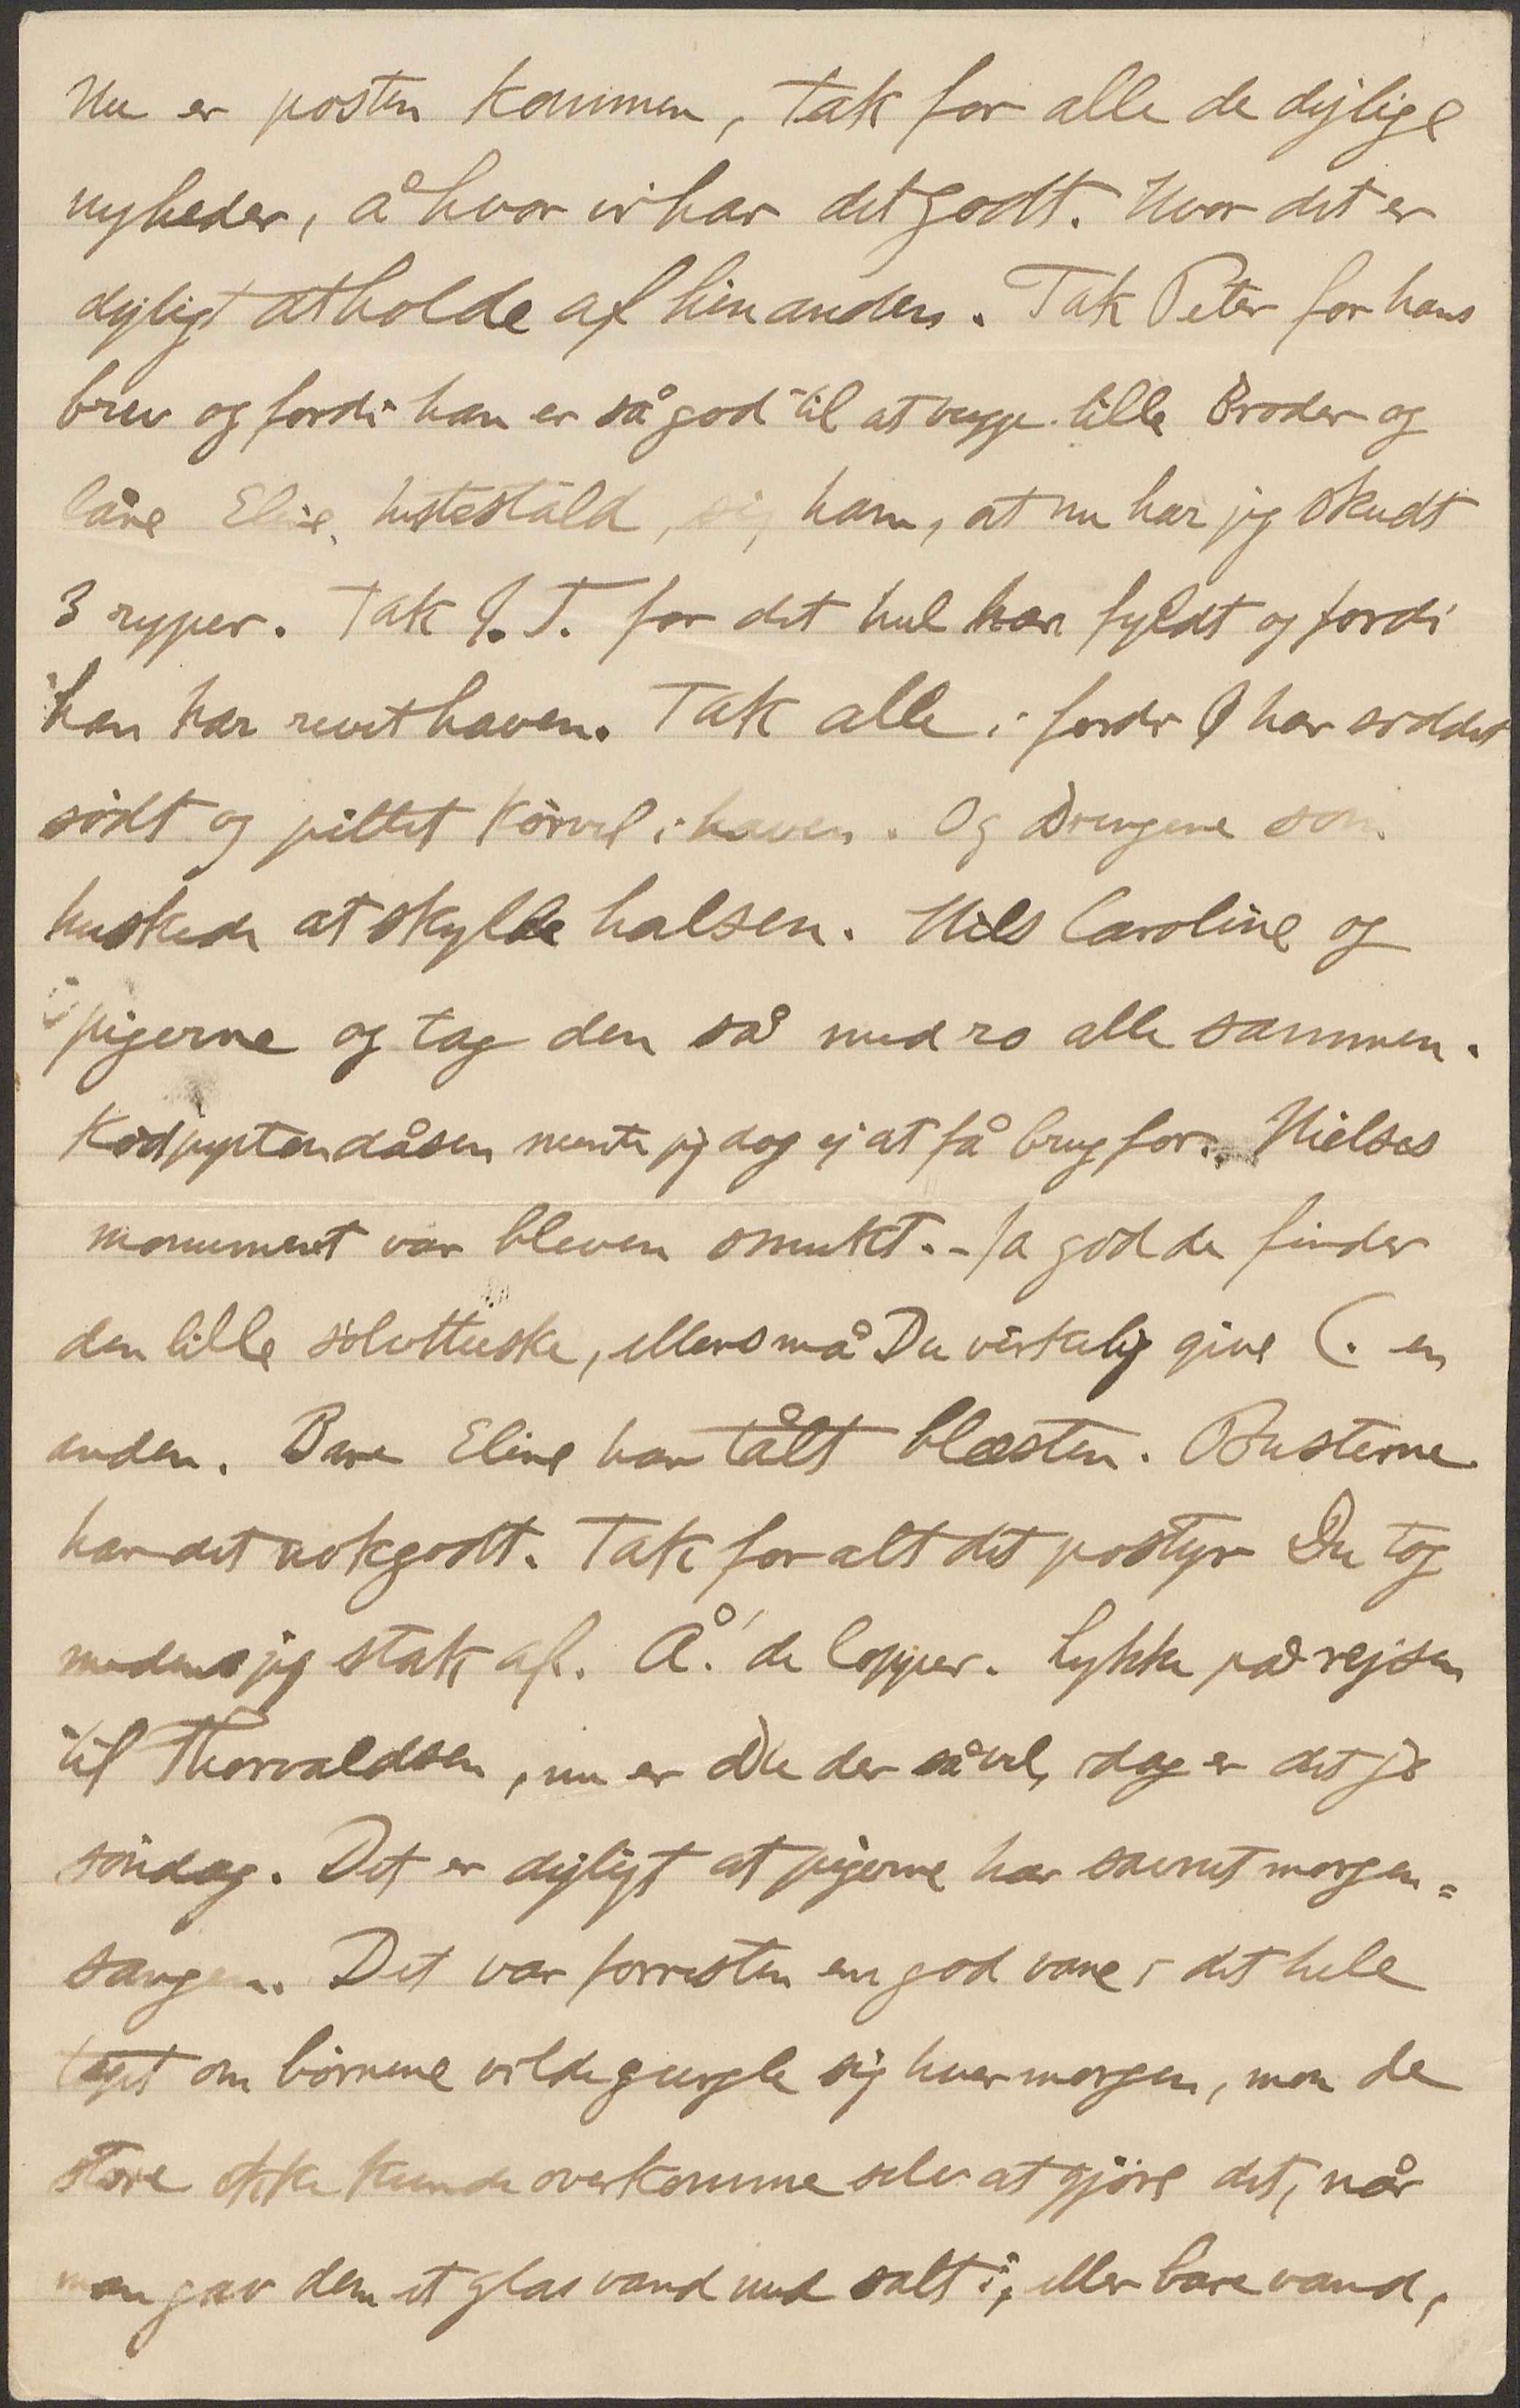 Nu er posten kommen, tak for alle de dejlige
nyheder, å hvor vi har det godt. Hvor det er
dejligt at holde af hinanden. Tak Peter for hans
brev og fordi han er så god til at vugge lille Broder og
låne Eline hestestald, sig ham, at nu har jeg skudt
3 ryper. Tak J. T. for det hul han fyldt og fordi
han har revet haven. Tak alle i fordi I har siddet
södt og pillet Körvel i haven. Og Drengene som
huskede at skylle halsen. Hils Caroline og
pigerne og tag den så med ro alle sammen.
Kødpeptondåsen mente jeg dog ej at få brug for. Nielses
monument var bleven smukt. - Ja god de finder
den lille sölvtheske, ellers må Du virkelig give C. en
anden. Bare Eline har tålt blæsten. Busterne
har det nok godt. Tak for alt det postyr Du tog
medens jeg stak af. Å! de lopper. Lykke på rejsen
til Thorvaldsen, nu er Du der såvel, idag er det jo
söndag. Det er dejligt at pigerne har savnet morgen=
sangen. Det var forresten en god vane i det hele
taget om börnene vilde gurgle sig hver morgen, mon de
store ikke kunde overkomme selv at gjöre det, når
man gav dem et glas vand med salt i, eller bare vand,